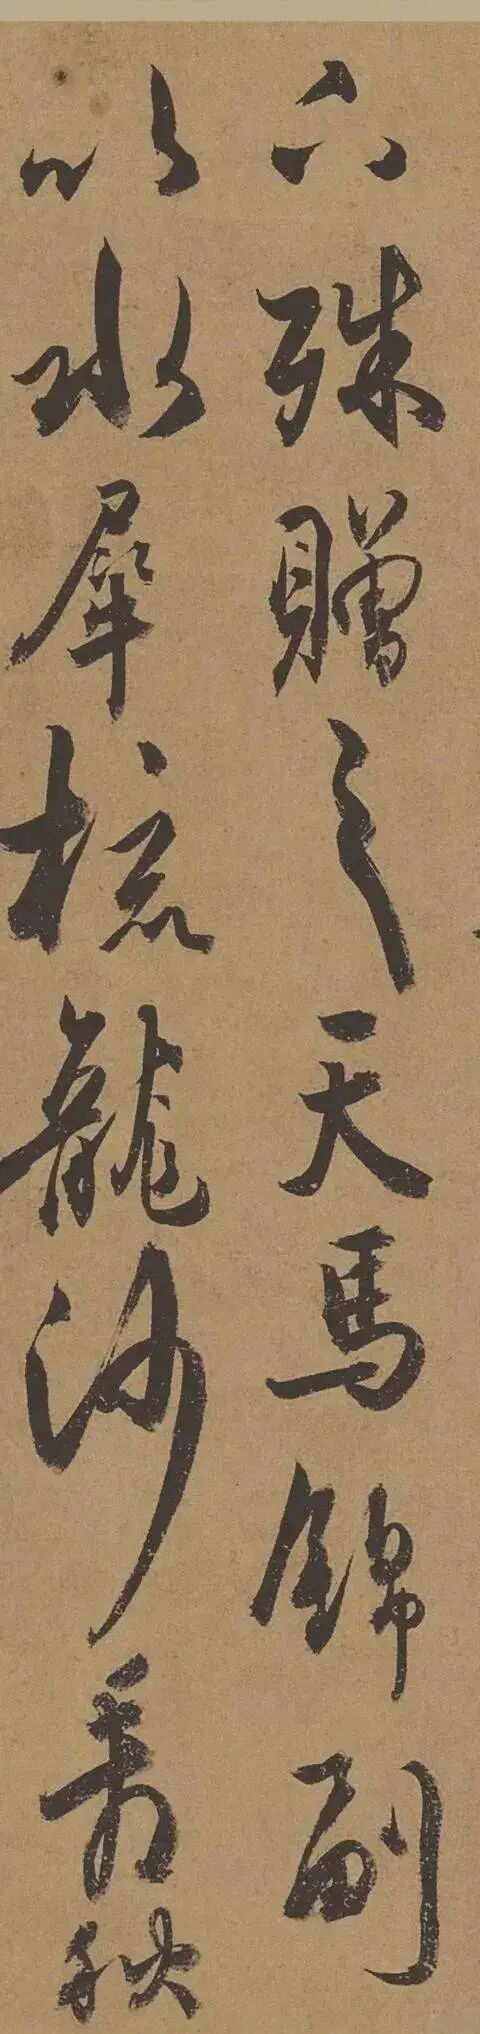 下殊贈之天馬錦副
以水犀梳龍沙看秋